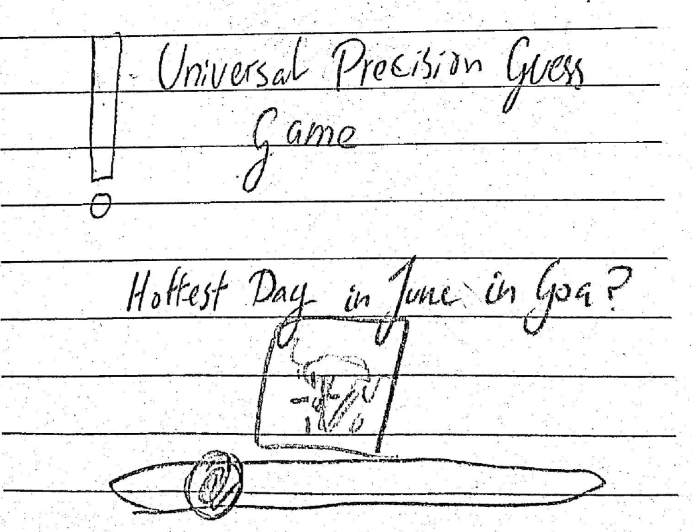 Universal Precision Guess
Game
Hottest Day in June in Goa?